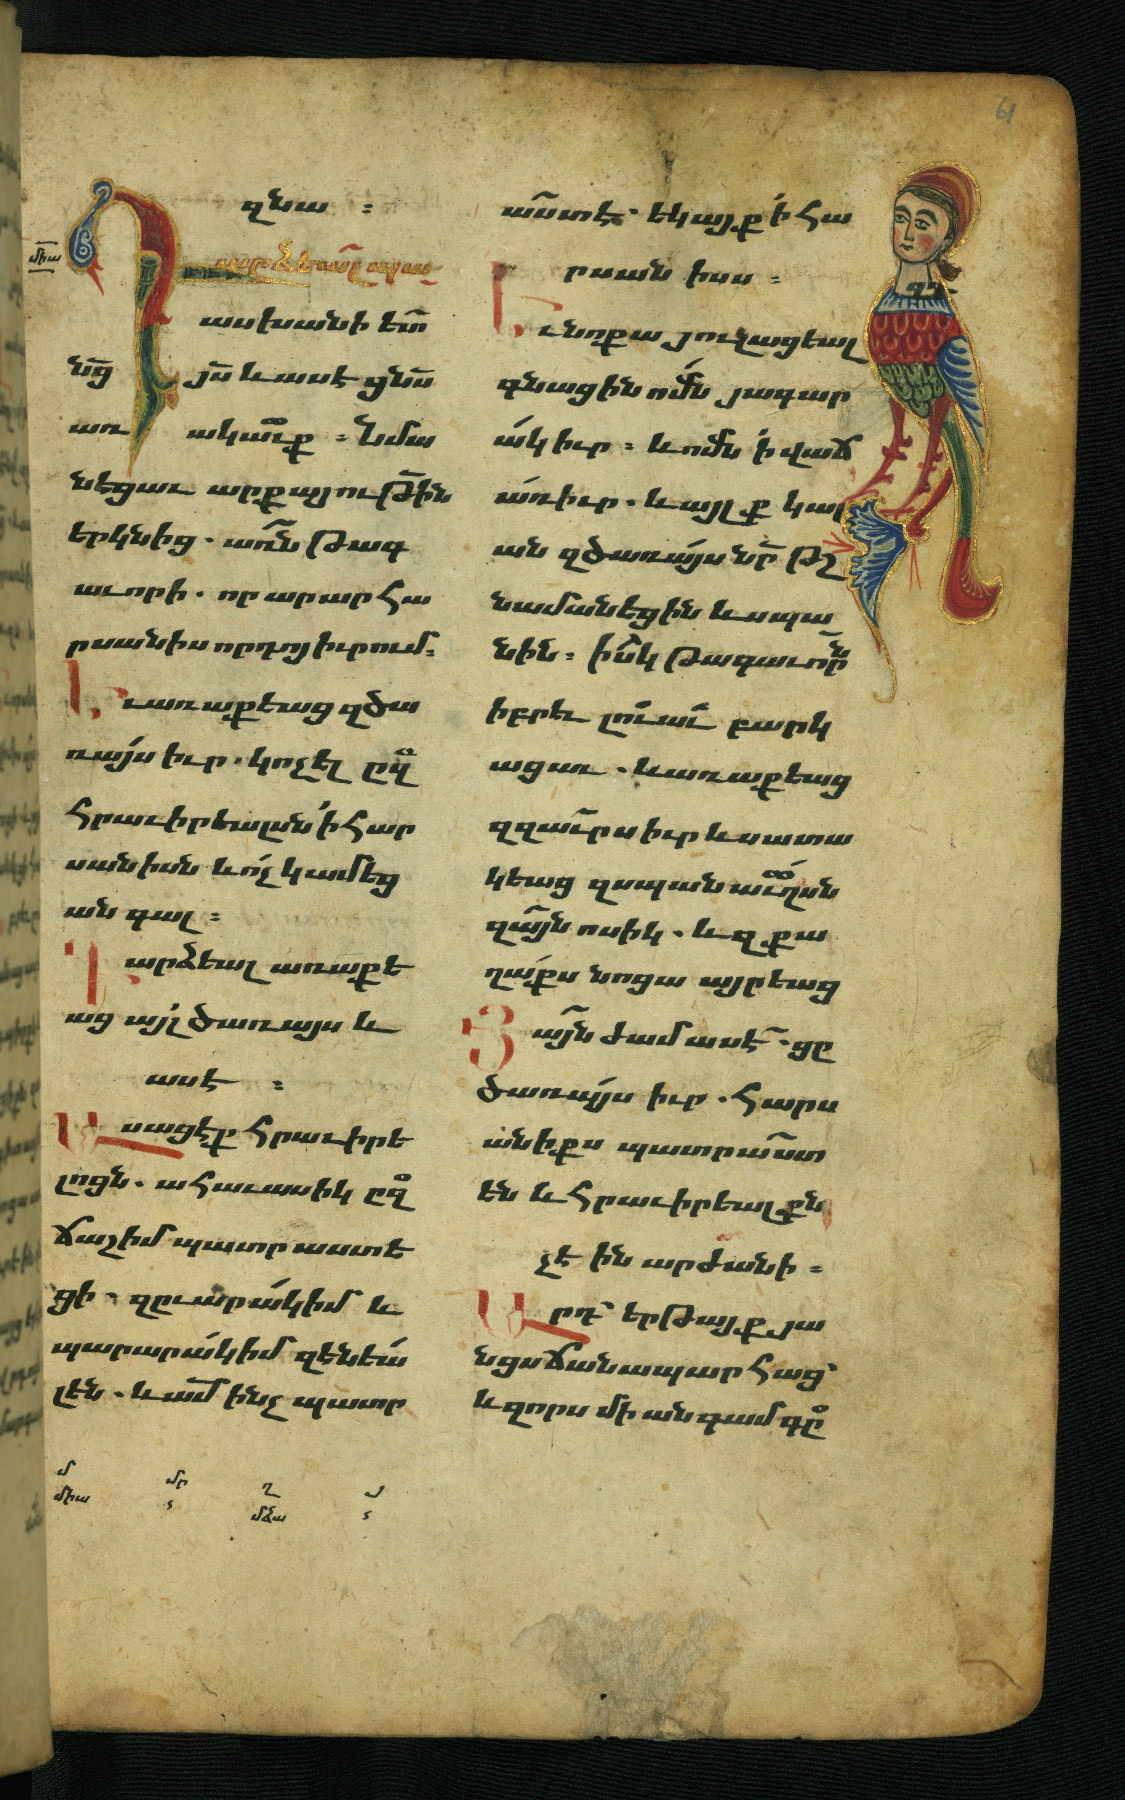 61
զնա ։
Դարձեալ պա
տասխանի ետ՟
նց՟ յս՟ և ասէ ցնս՟
առակաւք ։ Նմա
նեցաւ արքայութին՟
երկնից . առն՟ թագ
աւորի . որ արար հա
րսանիս որդոյ իւրում ։
Եւ առաքեաց զծա
ռայս իւր . կոչել զ
հրաւիրեալսն ՛ի հար
սանիսն և ոչ կամեց
ան գալ ։
Դարձեալ առաքե
աց այլ ծառայս և
ասէ ։
Ասացէք հրաւիրե
լոցն . ահաւասիկ զ
ճաշիմ պատրաստե
ցի . զըւարակիմ և
պարարակիմ զենեա
լեն . և ամ՟ ինչ պատր
աստ է . եկայք ՛ի հա
րսանիսս ։
Եւ նոքա յուլացեալ
գնացին ոմն յագար
ակ իւր ։ և ոմն ՛ի վաճ
առ իւր . և այլք կալ
ան զծառայս նր՟ թշ
նամանեցին և սպա
նին ։ Իսկ թագաւորն
իբրեւ լուաւ բարկ
ացաւ . և առաքեաց
զզաւրս իւր և սատա
կեաց զսպանաւղսն
զայն՟ոսիկ . և զքա
ղաքս նոցա այրեաց
Յայն՟ժամ ասէ . ցը
ծառայս իւր . հարս
անիքս պատրաստ
են և հրաւիրեալքն
չէին արժանի ։
Արդ՝ երթայք յա
նցս ճանապարհաց՝
և զորս միանգամ գը
միա
մ
միա
մր
մձա